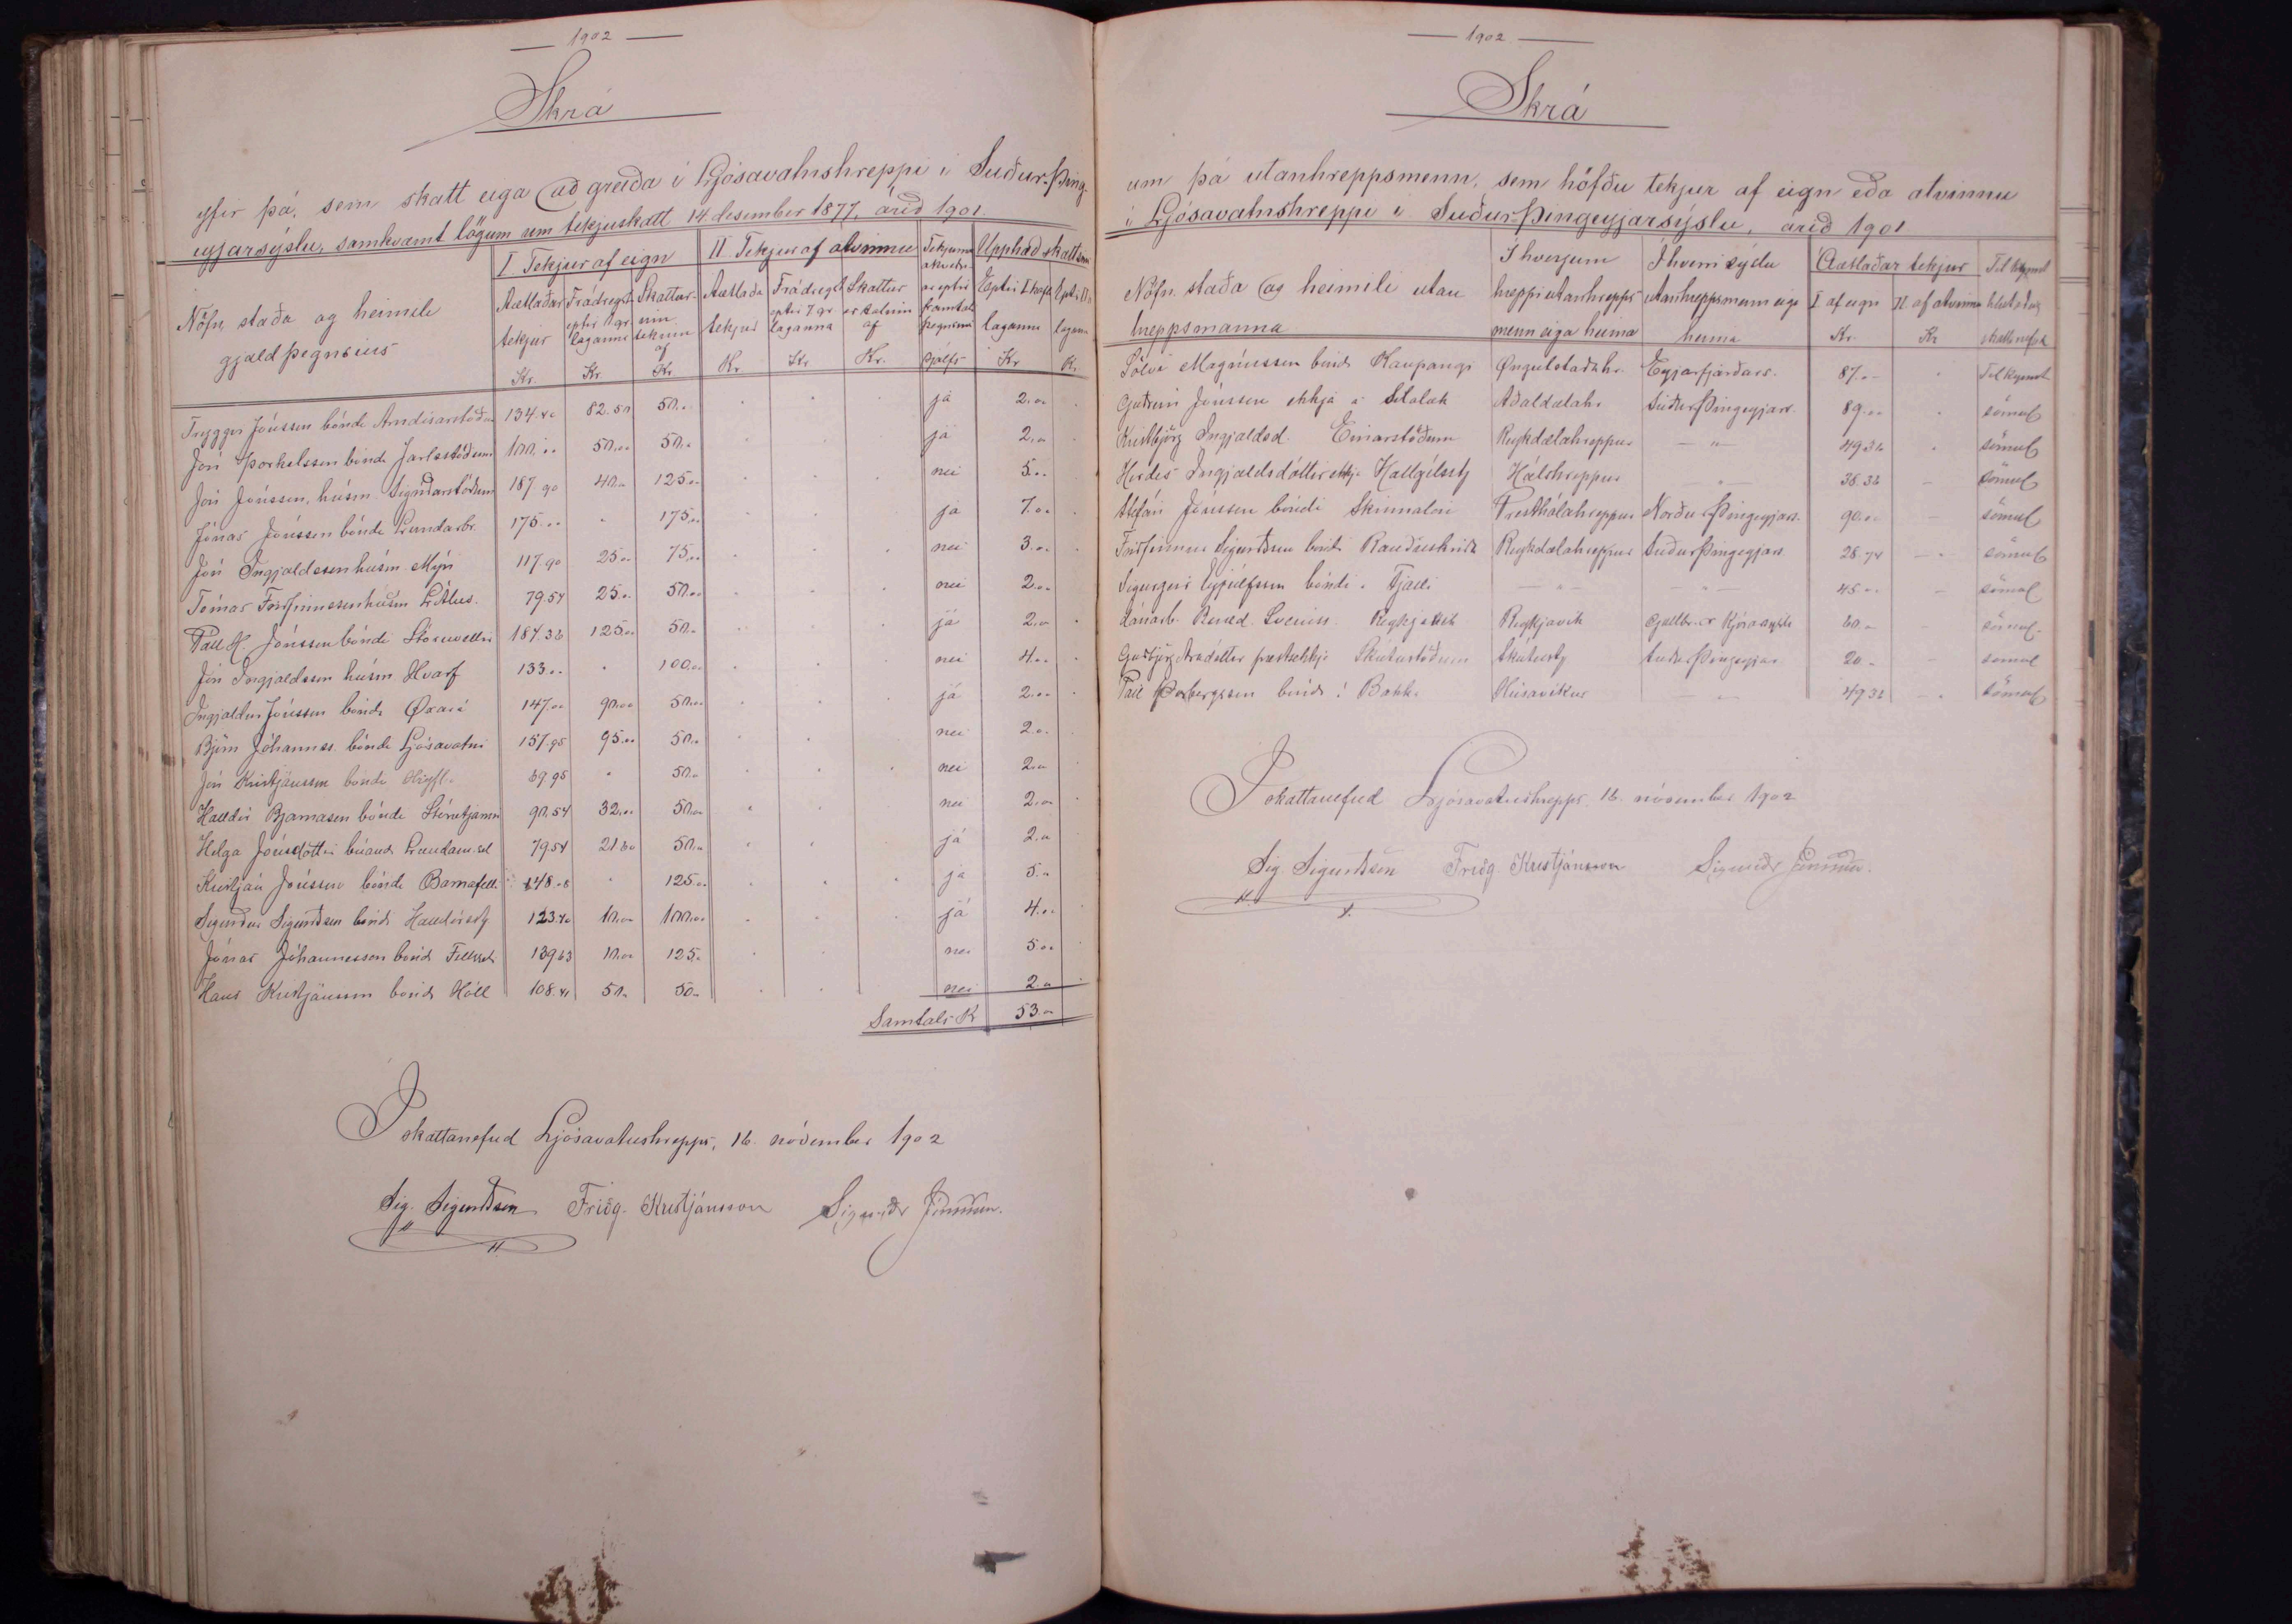 — 1902 —
Skrá
yfir þá, sem skatt eiga að greiða í Ljósavatnshreppi í Suður-Þing-
eyjarsýslu, samkvæmt lögum um tekjuskatt 14. desember 1877, árið 1901.
Nöfn, staða og heimili gjaldþegnsins | I Tekjur af eign | II. Tekjur af atvinnu | Upphæð skattsins
Áætlaðar tekjur Kr. | Frádregst eptir 1 gr laganna Kr. | Skattur- inn tekinn af Kr | Áætlaða tekjur Kr. | Frádregst eptir 7 gr laganna Kr | Skattur er tekinn af Kr. | sjálfs | Eptir I kafla laganna Kr | laganna Kr
Tryggvi Jónsson bóndi Arndísarstöðum 134.40 82.50 50.00 já 2.00
Jón Þorkelsson bóndi Jarlsstöðum 100.00 50.00 50.00 já 2.00
Jón Jónsson húsm. Sigurðarstöðum 187 90 40.00 125.00 nei 5.00
Jónas Jónsson bóndi Lundarbr. 175.00 " 175.00 já 7.00
Jón Ingjaldsson húsm. Mýri 117.90 25.00 75.00 nei 3.00
Tómas Fornfinnsson húsm 79.54 25.00 50.00 nei 2.00
Páll H. Jónsson bóndi Stóruvellir 184.36 125.00 50.00 já 2.00
Jón Ingjaldsson húsm Hvarf 133.00 " 100.00 nei 4.00
Ingjaldur Jónsson bóndi Öxará 147.00 90.00 50.00 já 2.00
Björn Jóhannss. bóndi Ljósavatni 157.95 95.00 50.00 nei 2.00
Jón Kristjánsson bóndi 69 95 " 50.00 nei 2.00
Halldór Bjarnason bóndi Stórutjarnir 90.54 32.00 50.00 nei 2.00
Helga Jónsdóttir búandi 79.54 21.60 50.00 já 2.00
Kristján Jónsson bóndi Barnafell 148.08 " 125.00 já 5.00
Sigurður Sigurðsson bóndi Halldórsst 123.40 10.00 100.00 já 4.00
Jónas Jóhannesson bóndi Fellssel 139 63 10.00 125.00 nei 5.00
Hans Kristjánsson bóndi Hóll 108.41 50.00 50.00 nei 2.00
Samtals Kr 53.00
Í skattanefnd Ljósavatnshrepps, 16. nóvember 1902
Sig. Sigurðsson Friðg. Kristjánsson Sigurður Jónsson.
— 1902 —
Skrá
um þá utanhreppsmenn, sem höfðu tekjur af eign eða atvinnu
í Ljósavatnshreppi í Suður-Þingeyjarsýslu, árið 1901
Nöfn, staða og heimili utan hreppsmanna | Í hverjum hreppi utanhrepps menn eiga heima | Í hverri sýslu utanhreppsmenn eiga heima | Áætlaðar tekjur I af eign Kr. II. af atvinnu Kr
Sölvi Magnússon bóndi Kaupangi Öngulstaðahr. Eyjarfjarðars. 87.00
Guðrún Jónsson ekkja Aðaldælahr. Suður Þingeyjars. 89.00 sömul
Kristbjörg Ingjaldsd. Einarstöðum Reykdælahreppur — " — 49.36 sömul
Herdís Ingjaldsdóttir ekkja Hallgilsst Hálshreppur — " — 38.36 sömul
Stefán Jónsson bóndi Skinnalón Presthólahreppur Norður Þingeyjars. 90.00 sömul
Sigurðsson bóndi Rauðuskriðu Reykdælahreppur Suður Þingeyjars 28.74 sömul
Sigurgeir Eyjólfsson bóndi Fjalli — " — — " — 45.00 sömul
Dánarb. Bened. Sveinss. Reykjavík Reykjavík Gullbr. & Kjósarsýsla 60.— sömul
Guðbjörg Aradóttir prestsekkja Skútustöðum Skútust Suður Þingeyjar 20.— sömul
Páll Þorbergsson bóndi í Bakka Húsavíkur — " — 49 36 sömul
Í skattanefnd Ljósavatnshrepps, 16. nóvember 1902
Sig. Sigurðsson Friðg Kristjánsson Sigurður Jónsson.